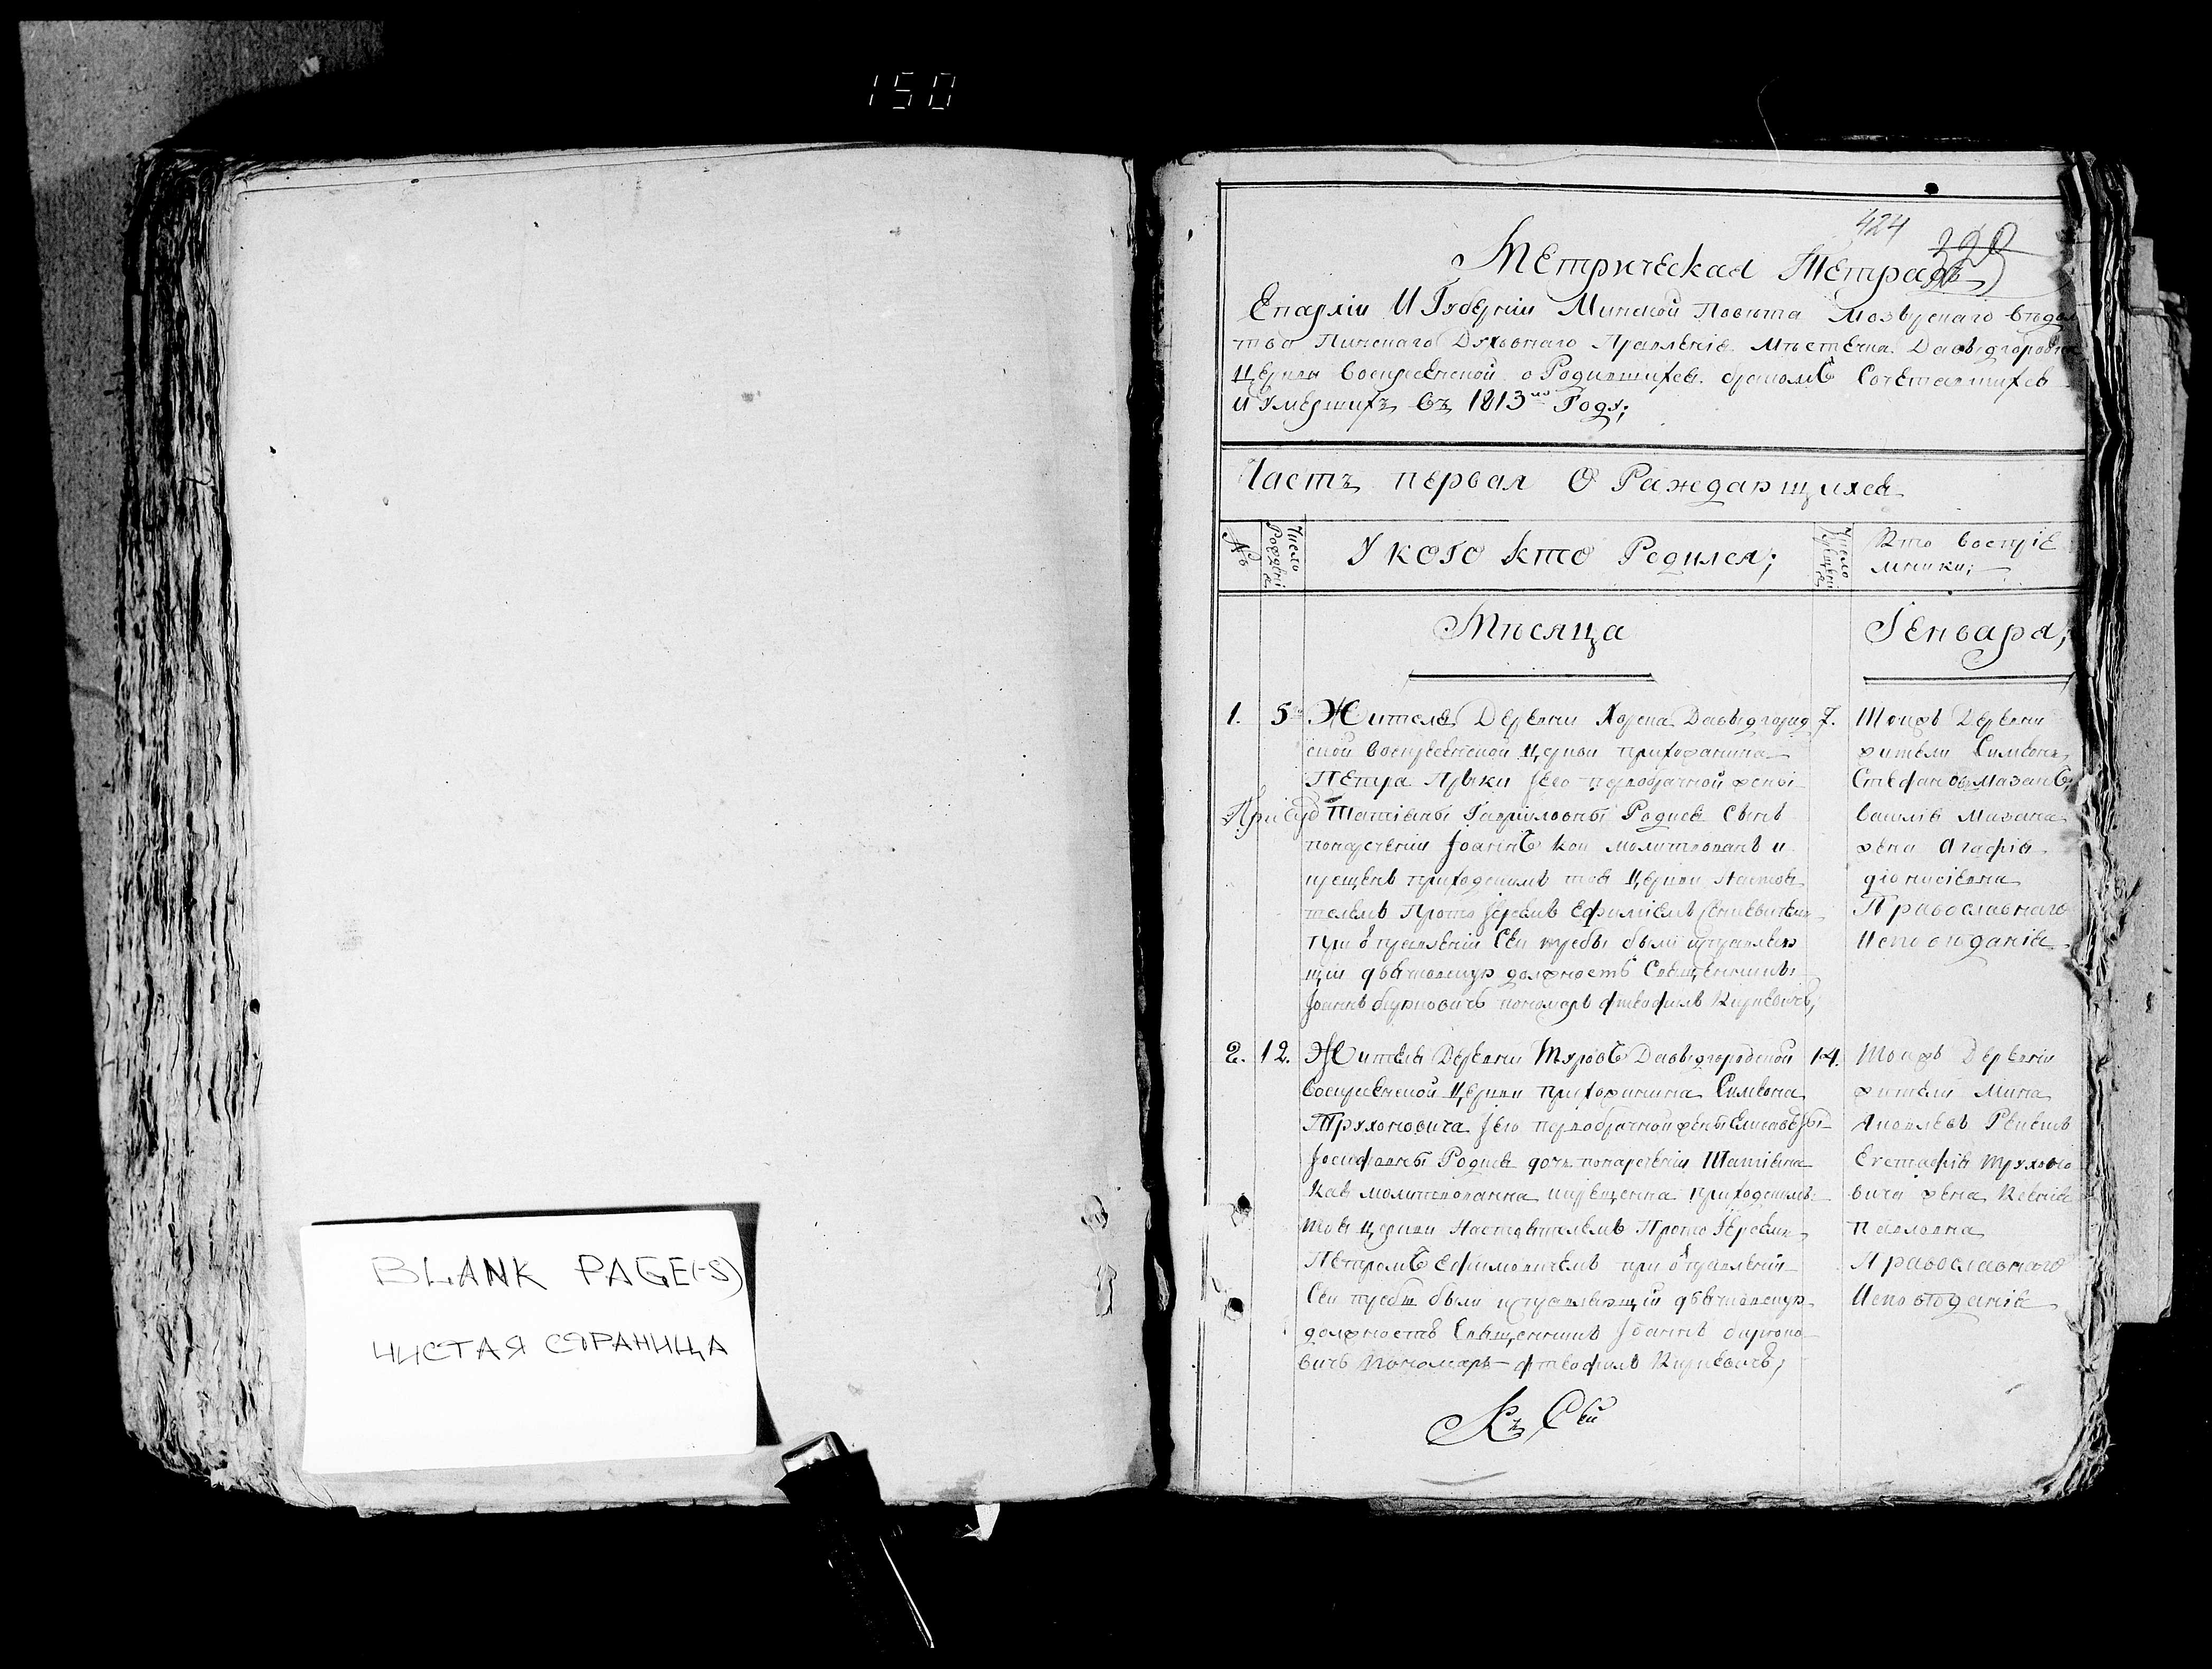 150
424
Метрическая Тетрадь
Епархіи И Губерніи Минской Повѣта Мозырскаго вѣдом
тва Пинскаго Духовнаго Правленія Мѣстечка Давыдгородка
Церкви Воскресенской о Родившихся бракомъ Сочетавшихся
и Умершихъ въ 1813го Году;
Часть первая О Раждающихся
№ Число Рожденія У кого кто Родился; Число Крещенія Кто воспріе
мники;
Мѣсяца Генваря;
1. 5 Жителя Деревни Хорска Давыдгород 7.
ской Воскресенской Церкви прихожанина
Петра Ярыки Jего первобрачной жены
Татіаны Гавриловны Родися Сынъ
понареченіи Jоаннъ кои молитвованъ и
крещенъ приходскимъ тоя Церкви Настоя
телемъ Прото Іереемъ Ефиміемъ
при отправленіи Сеи требы были исправляю
щіи дьячковскую должность Священникъ
Jоаннъ пономарь Фтеофилъ
Тоижъ Деревни
жители Симеонъ
Стефановъ Мазанъ
Василія Мазана
жена Агафія
діонисіевна
Православнаго
Исповѣданія
2. 12. Жителя Деревни Туровъ Давыдгородской 14.
Воскресенской Церкви прихожанина Симеона
Трухоновича Jего первобрачной жены Елисаветы
Jосифовны Родися дочь понареченіи Татіана
Кая молитвованна икрещенна приходскимъ
тоя Церкви Настоятелемъ Прото Іереемъ
Петромъ Ефимовичемъ при отправленіи
Сеи требы были исправляющіи дьячковскую
должность Священникъ Jоаннъ
вичъ Пономарь Фтеофилъ
Тоижъ Деревни
жители Мина
Яковлевъ
Евстафія Трухоно
вича жена Ксенія
Павловна
Православнаго
Исповѣданія
Къ Сеи
BLANK PAGE(-S)
ЧИСТАЯ СТРАНИЦА